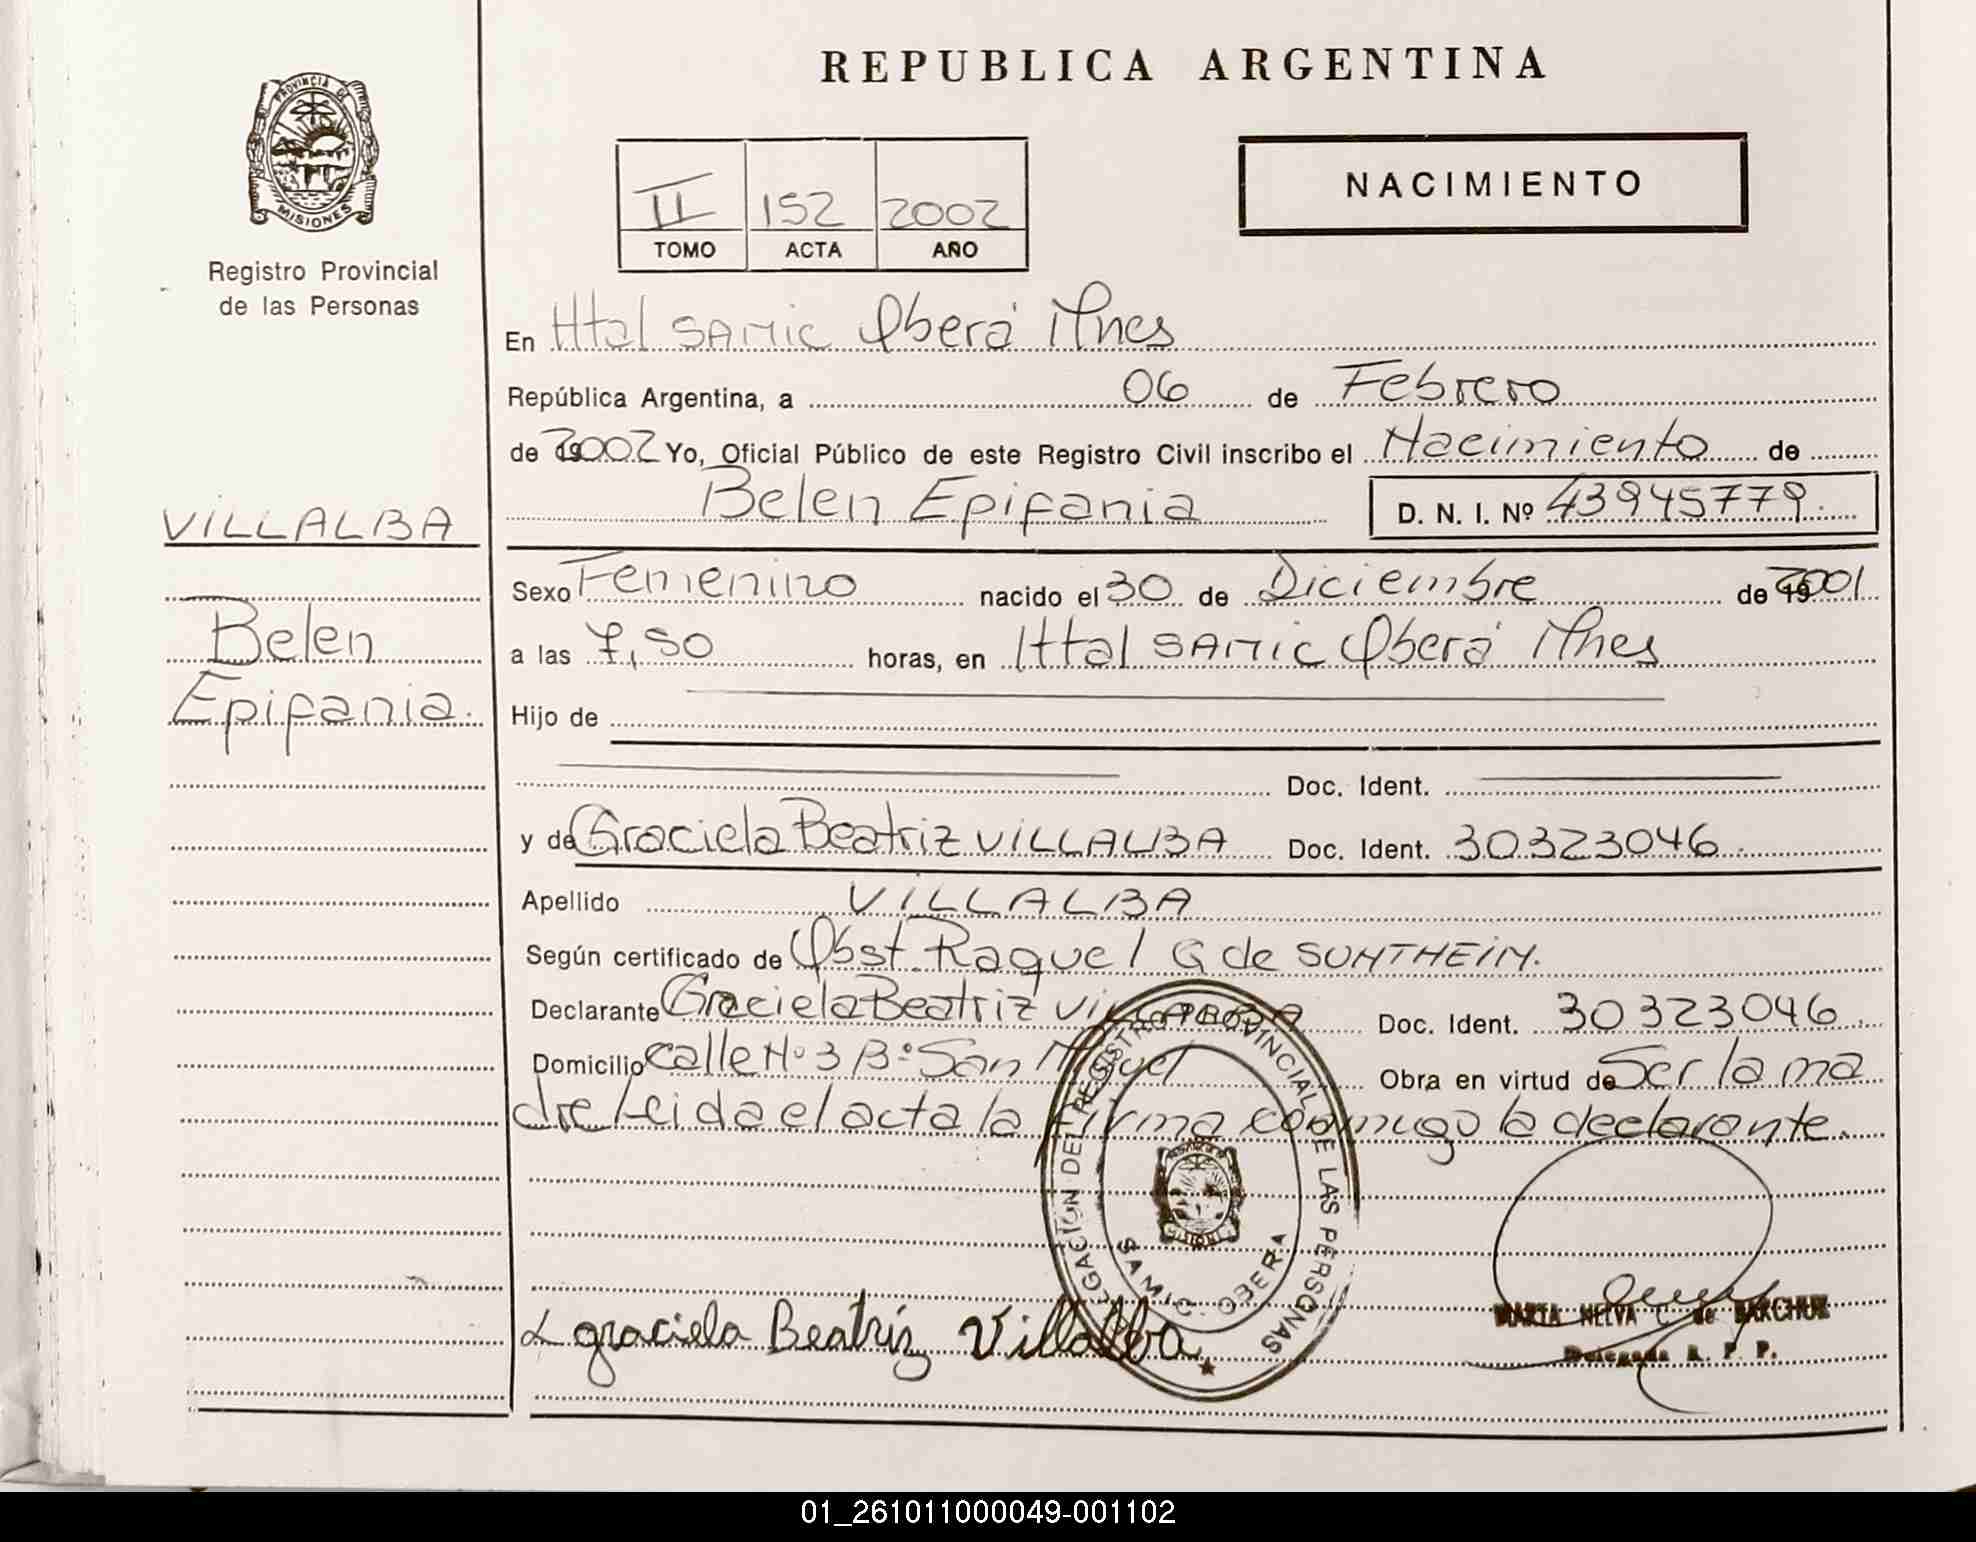 REPUBLICA ARGENTINA
PROVINCIA DE
MISIONES
Registro Provincial
de las Personas
II 152 2002
TOMO ACTA AÑO
NACIMIENTO
En Htal SAMIC Oberá Mnes
República Argentina, a 06 de Febrero
de 2002 Yo, Oficial Público de este Registro Civil inscribo el Nacimiento de
Belen Epifania D. N. I. Nº 43945779.
VILLALBA
Belen
Epifania.
Sexo Femenino nacido el 30 de Diciembre de 2001
a las 7,50 horas, en Httal SAMIC Oberá Mnes
Hijo de
Doc. Ident.
y de Graciela Beatriz VILLALBA Doc. Ident. 30323046.
Apellido VILLALBA
Según certificado de Obst. Raquel G de SUNTHEIM.
Declarante Graciela Beatriz VILLALBA Doc. Ident. 30323046.
Domicilio calle Nº 3 Bº San Miguel Obra en virtud de Ser la ma
dre Leida el acta la firma conmigo la declarante.
DELEGACION DEL REGISTRO PROVINCIAL DE LAS PERSONAS
MISIONES
SAMIC. OBERA
graciela Beatriz Villalba
MARTA NELVA C. de BARCHUK
Delegada R. P. P.
01_261011000049-001102